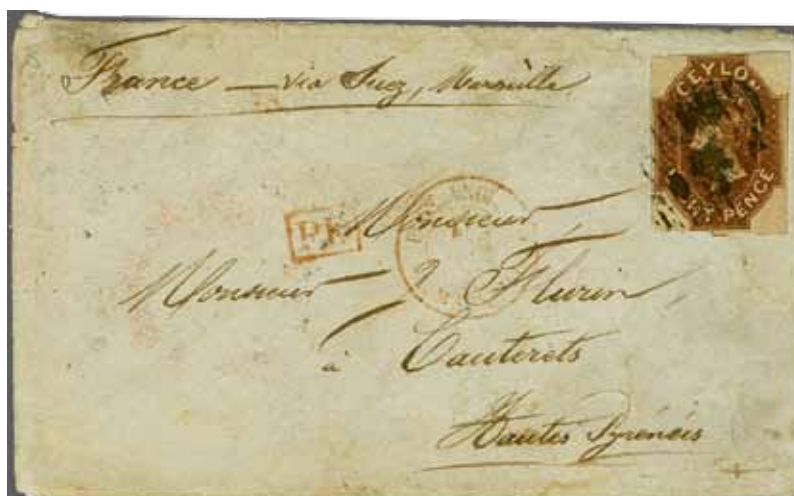 France — via Suez, Marseille
CEYLON
PENCE
Monsieur
Monsieur Flurin
à Cauterets
Hautes Pyrénées